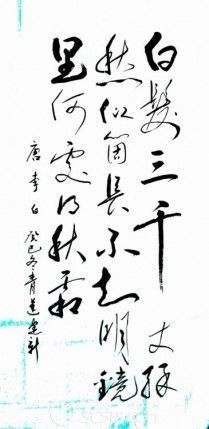 白髮三千丈緣
愁似箇長不知明鏡
里何處得秋霜
唐李白癸巳冬青蓮